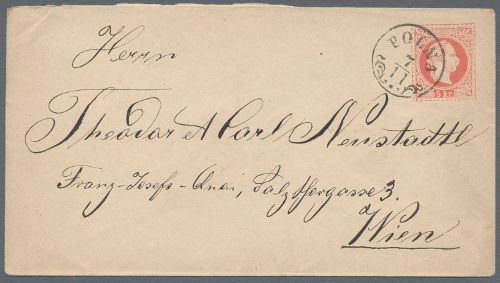 Herrn
POLNA
7
11
5 Kr.
Theodor & Carl Neustadtl
Franz-Josefs-Quai, Salzthorgasse 3.
Wien